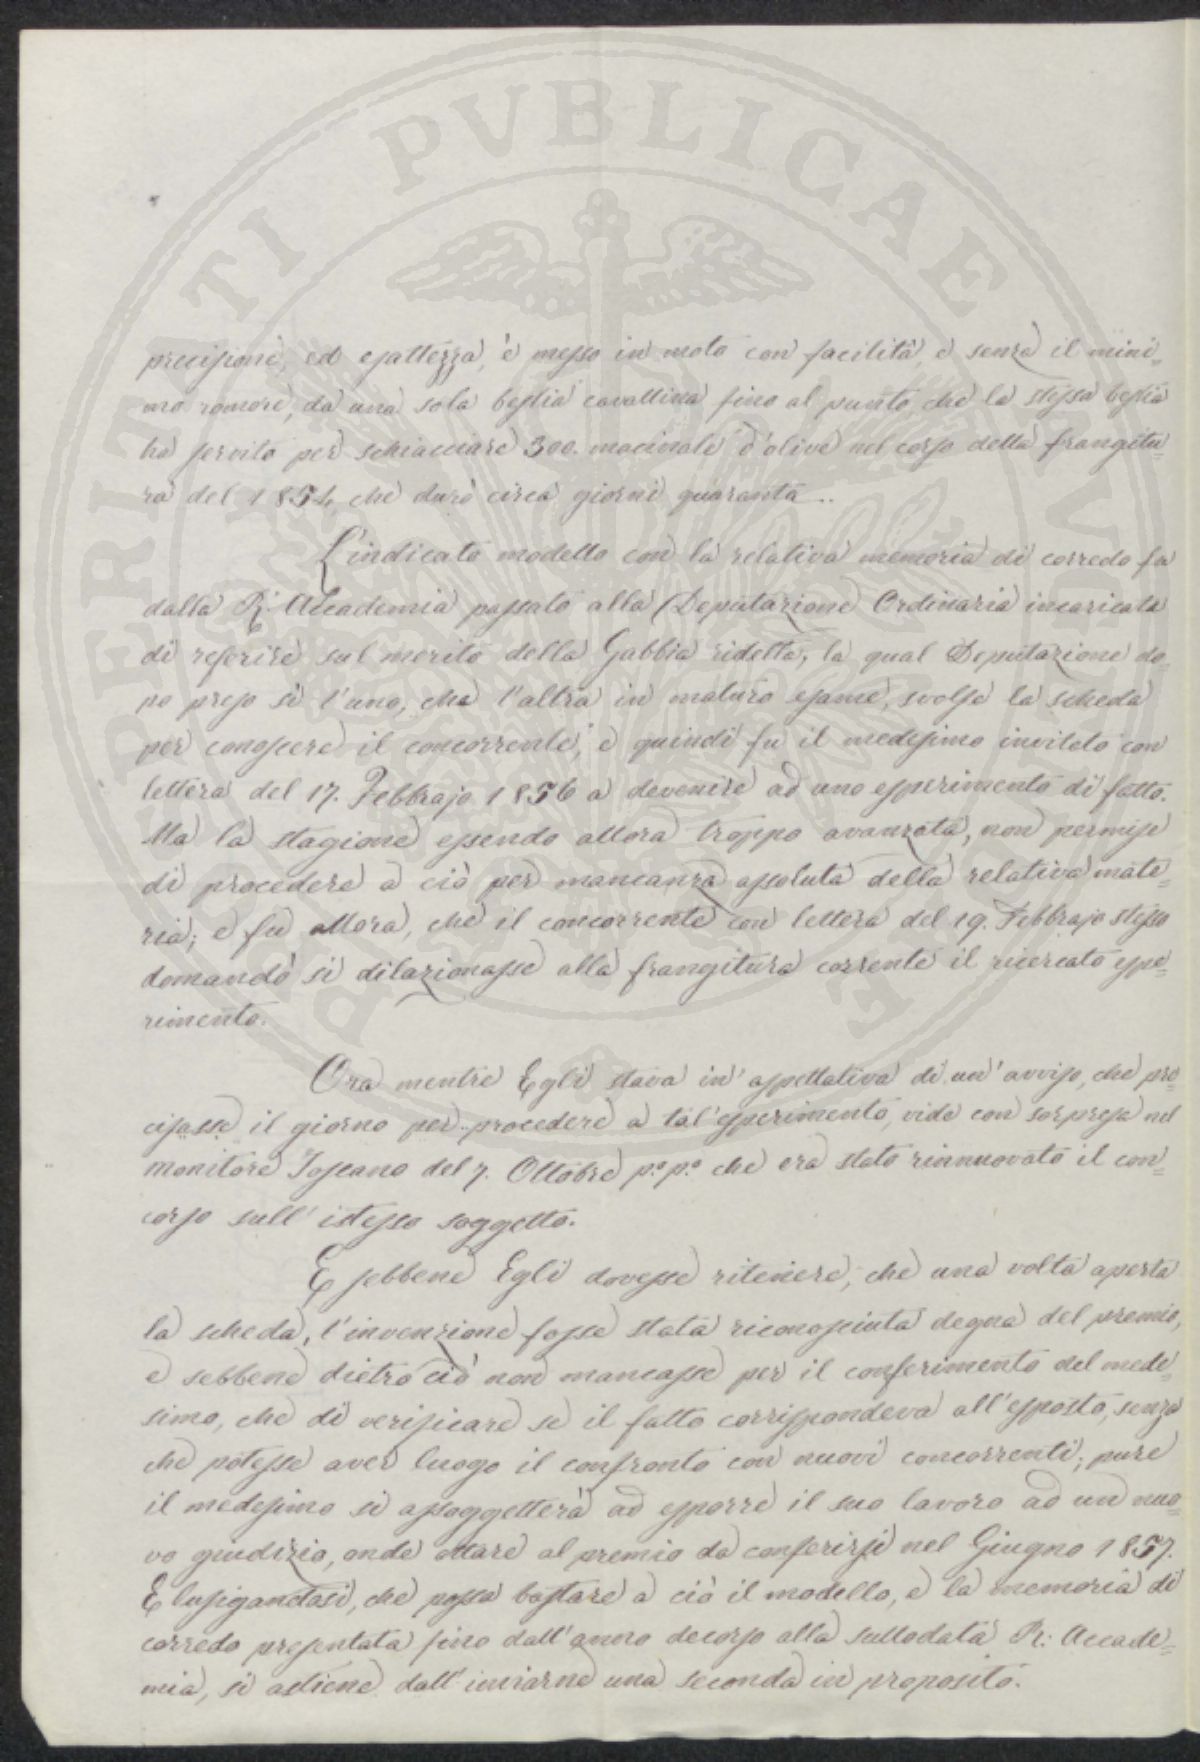 PROSPERITATI PVBLICAE AVGENDAE
precisione, ed esattezza, è messo in moto con facilità, e senza il mini=
mo romore, da una sola bestia cavallina fino al punto, che la stessa bestia
ha servito per schiacciare 300. macinate d'olive nel corso della frangitu=
ra del 1854, che durò circa giorni quaranta..
L'indicato modello con la relativa memoria di corredo fu
dalla R: Accademia passato alla Deputazione Ordinaria incaricata
di referire sul merito della Gabbia ridetta, la qual Deputazione do=
po preso sì l'uno, che l'altra in maturo esame, svolse la scheda
per conoscere il concorrente, e quindi fu il medesimo invitato con
lettera del 17. Febbrajo 1856 a devenire ad uno esperimento di fatto.
Ma la stagione essendo allora troppo avanzata, non permise
di procedere a ciò per mancanza assoluta della relativa mate=
ria; e fu allora, che il concorrente con lettera del 19. Febbrajo stesso
domandò si dilazionasse alla frangitura corrente il ricercato espe=
rimento.
Ora mentre Egli stava in' aspettativa di un' avviso, che pre=
cisasse il giorno per procedere a tal'esperimento, vide con sorpresa nel
Monitore Toscano del 7. Ottobre p.º p.º che era stato rinnuovato il con=
corso sull' istesso soggetto.
E sebbene Egli dovesse ritenere, che una volta aperta
la scheda, l'invenzione fosse stata riconosciuta degna del premio,
e sebbene dietro ciò non mancasse per il conferimento del mede=
simo, che di verificare se il fatto corrispondeva all'esposto, senza
che potesse aver luogo il confronto con nuovi concorrenti; pure
il medesimo si assoggetterà ad esporre il suo lavoro ad un nuo=
vo giudizio, onde ottare al premio da conferirsi nel Giugno 1857.
E lusigandosi, che possa bastare a ciò il modello, e la memoria di
corredo presentata fino dall'anno decorso alla sullodata R: Accade=
mia, si astiene dall'inviarne una seconda in proposito.